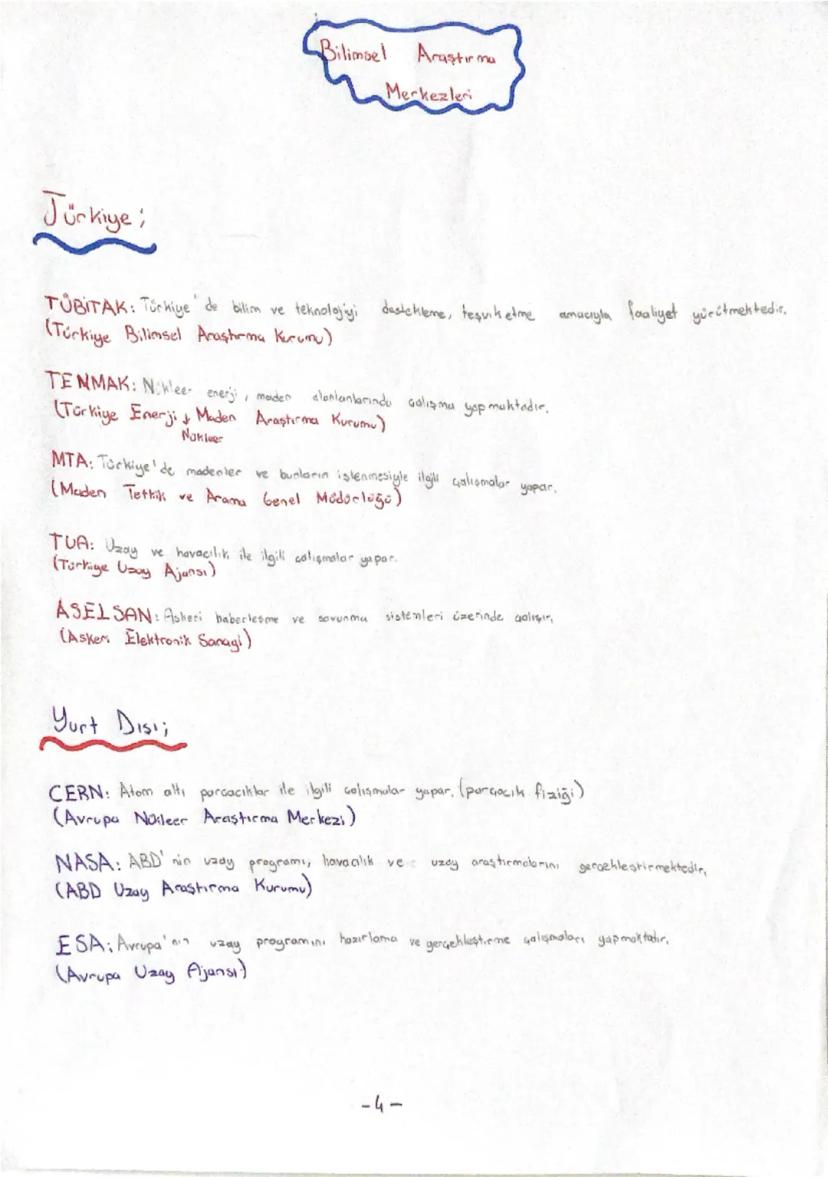 Bilimsel Araştırma
Merkezleri
Türkiye;
TÜBİTAK: Türkiye'de bilim ve teknolojiyi destekleme, teşvik etme amacıyla faaliyet yürütmektedir.
(Türkiye Bilimsel Araştırma Kurumu)
TENMAK: Nükleer enerji, maden alanlanlarında çalışma yapmaktadır.
(Türkiye Enerji ↓ Maden Araştırma Kurumu)
Nükleer
MTA: Türkiye'de madenler ve bunların işlenmesiyle ilgili çalışmalar yapar.
(Maden Tetkik ve Arama Genel Müdürlüğü)
TUA: Uzay ve havacılık ile ilgili çalışmalar yapar.
(Türkiye Uzay Ajansı)
ASELSAN: Askeri haberleşme ve savunma sistemleri üzerinde çalışır.
(Askeri Elektronik Sanayi)
Yurt Dışı;
CERN: Atom altı parçacıklar ile ilgili çalışmalar yapar. (parçacık fiziği)
(Avrupa Nükleer Araştırma Merkezi)
NASA: ABD'nin uzay programı, havacılık ve uzay araştırmalarını gerçekleştirmektedir.
(ABD Uzay Araştırma Kurumu)
ESA: Avrupa'nın uzay programını hazırlama ve gerçekleştirme çalışmaları yapmaktadır.
(Avrupa Uzay Ajansı)
-4-